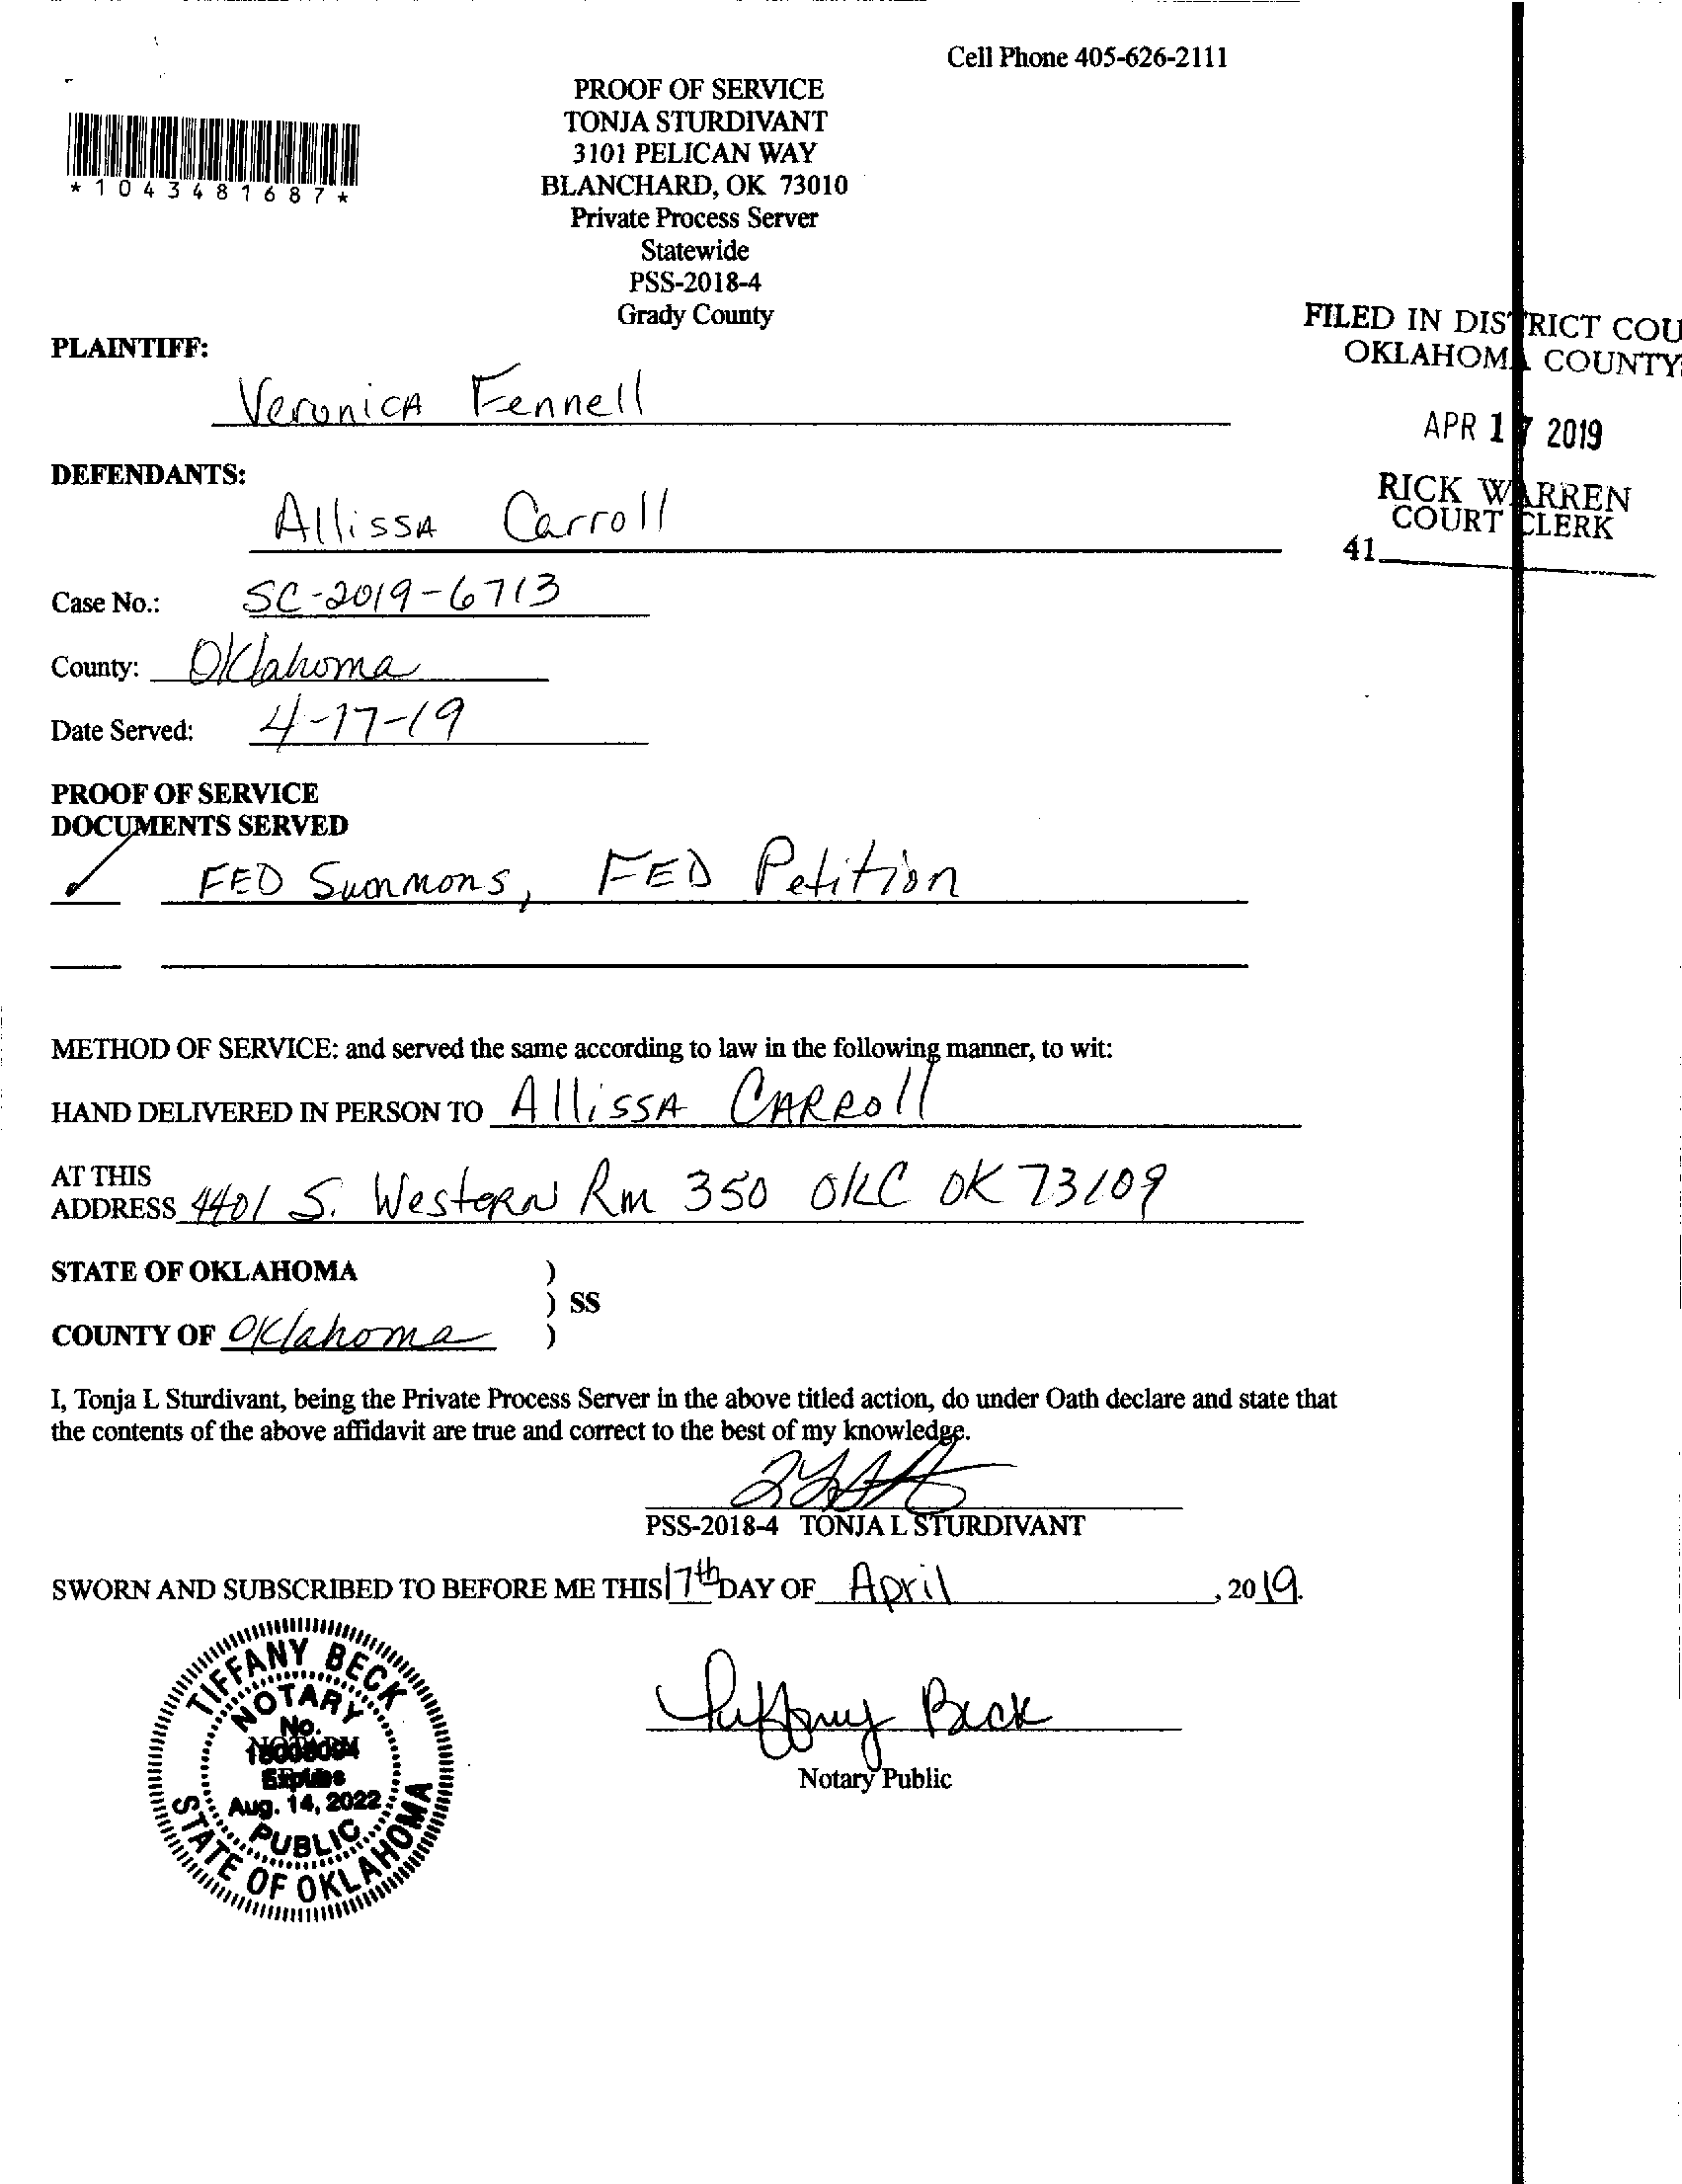 Cell Phone 405-626-2111
PROOF OF SERVICE
TONJA STURDIVANT
3101 PELICAN WAY
BLANCHARD, OK 73010
Private Process Server
Statewide
PSS-2018-4
Grady County
*1043481687*
FILED IN DISTRICT COU
OKLAHOMA COUNTY
APR 17 2019
RICK WARREN
COURT CLERK
41
PLAINTIFF:
Veronica Fennell
DEFENDANTS:
Allissa Carroll
Case No.: SC-2019-6713
County: Oklahoma
Date Served: 4-17-19
PROOF OF SERVICE
DOCUMENTS SERVED
FED Summons, FED Petition
METHOD OF SERVICE: and served the same according to law in the following manner, to wit:
HAND DELIVERED IN PERSON TO Allissa Carroll
AT THIS
ADDRESS 4401 S. Western Rm 350 OKC OK 73109
STATE OF OKLAHOMA )
) SS
COUNTY OF Oklahoma )
I, Tonja L Sturdivant, being the Private Process Server in the above titled action, do under Oath declare and state that
the contents of the above affidavit are true and correct to the best of my knowledge.
PSS-2018-4 TONJA L STURDIVANT
SWORN AND SUBSCRIBED TO BEFORE ME THIS 17th DAY OF April, 2019.
Tiffany Beck
Notary Public
TIFFANY BECK
NOTARY
No.
Expires
Aug. 14, 2022
PUBLIC
STATE OF OKLAHOMA